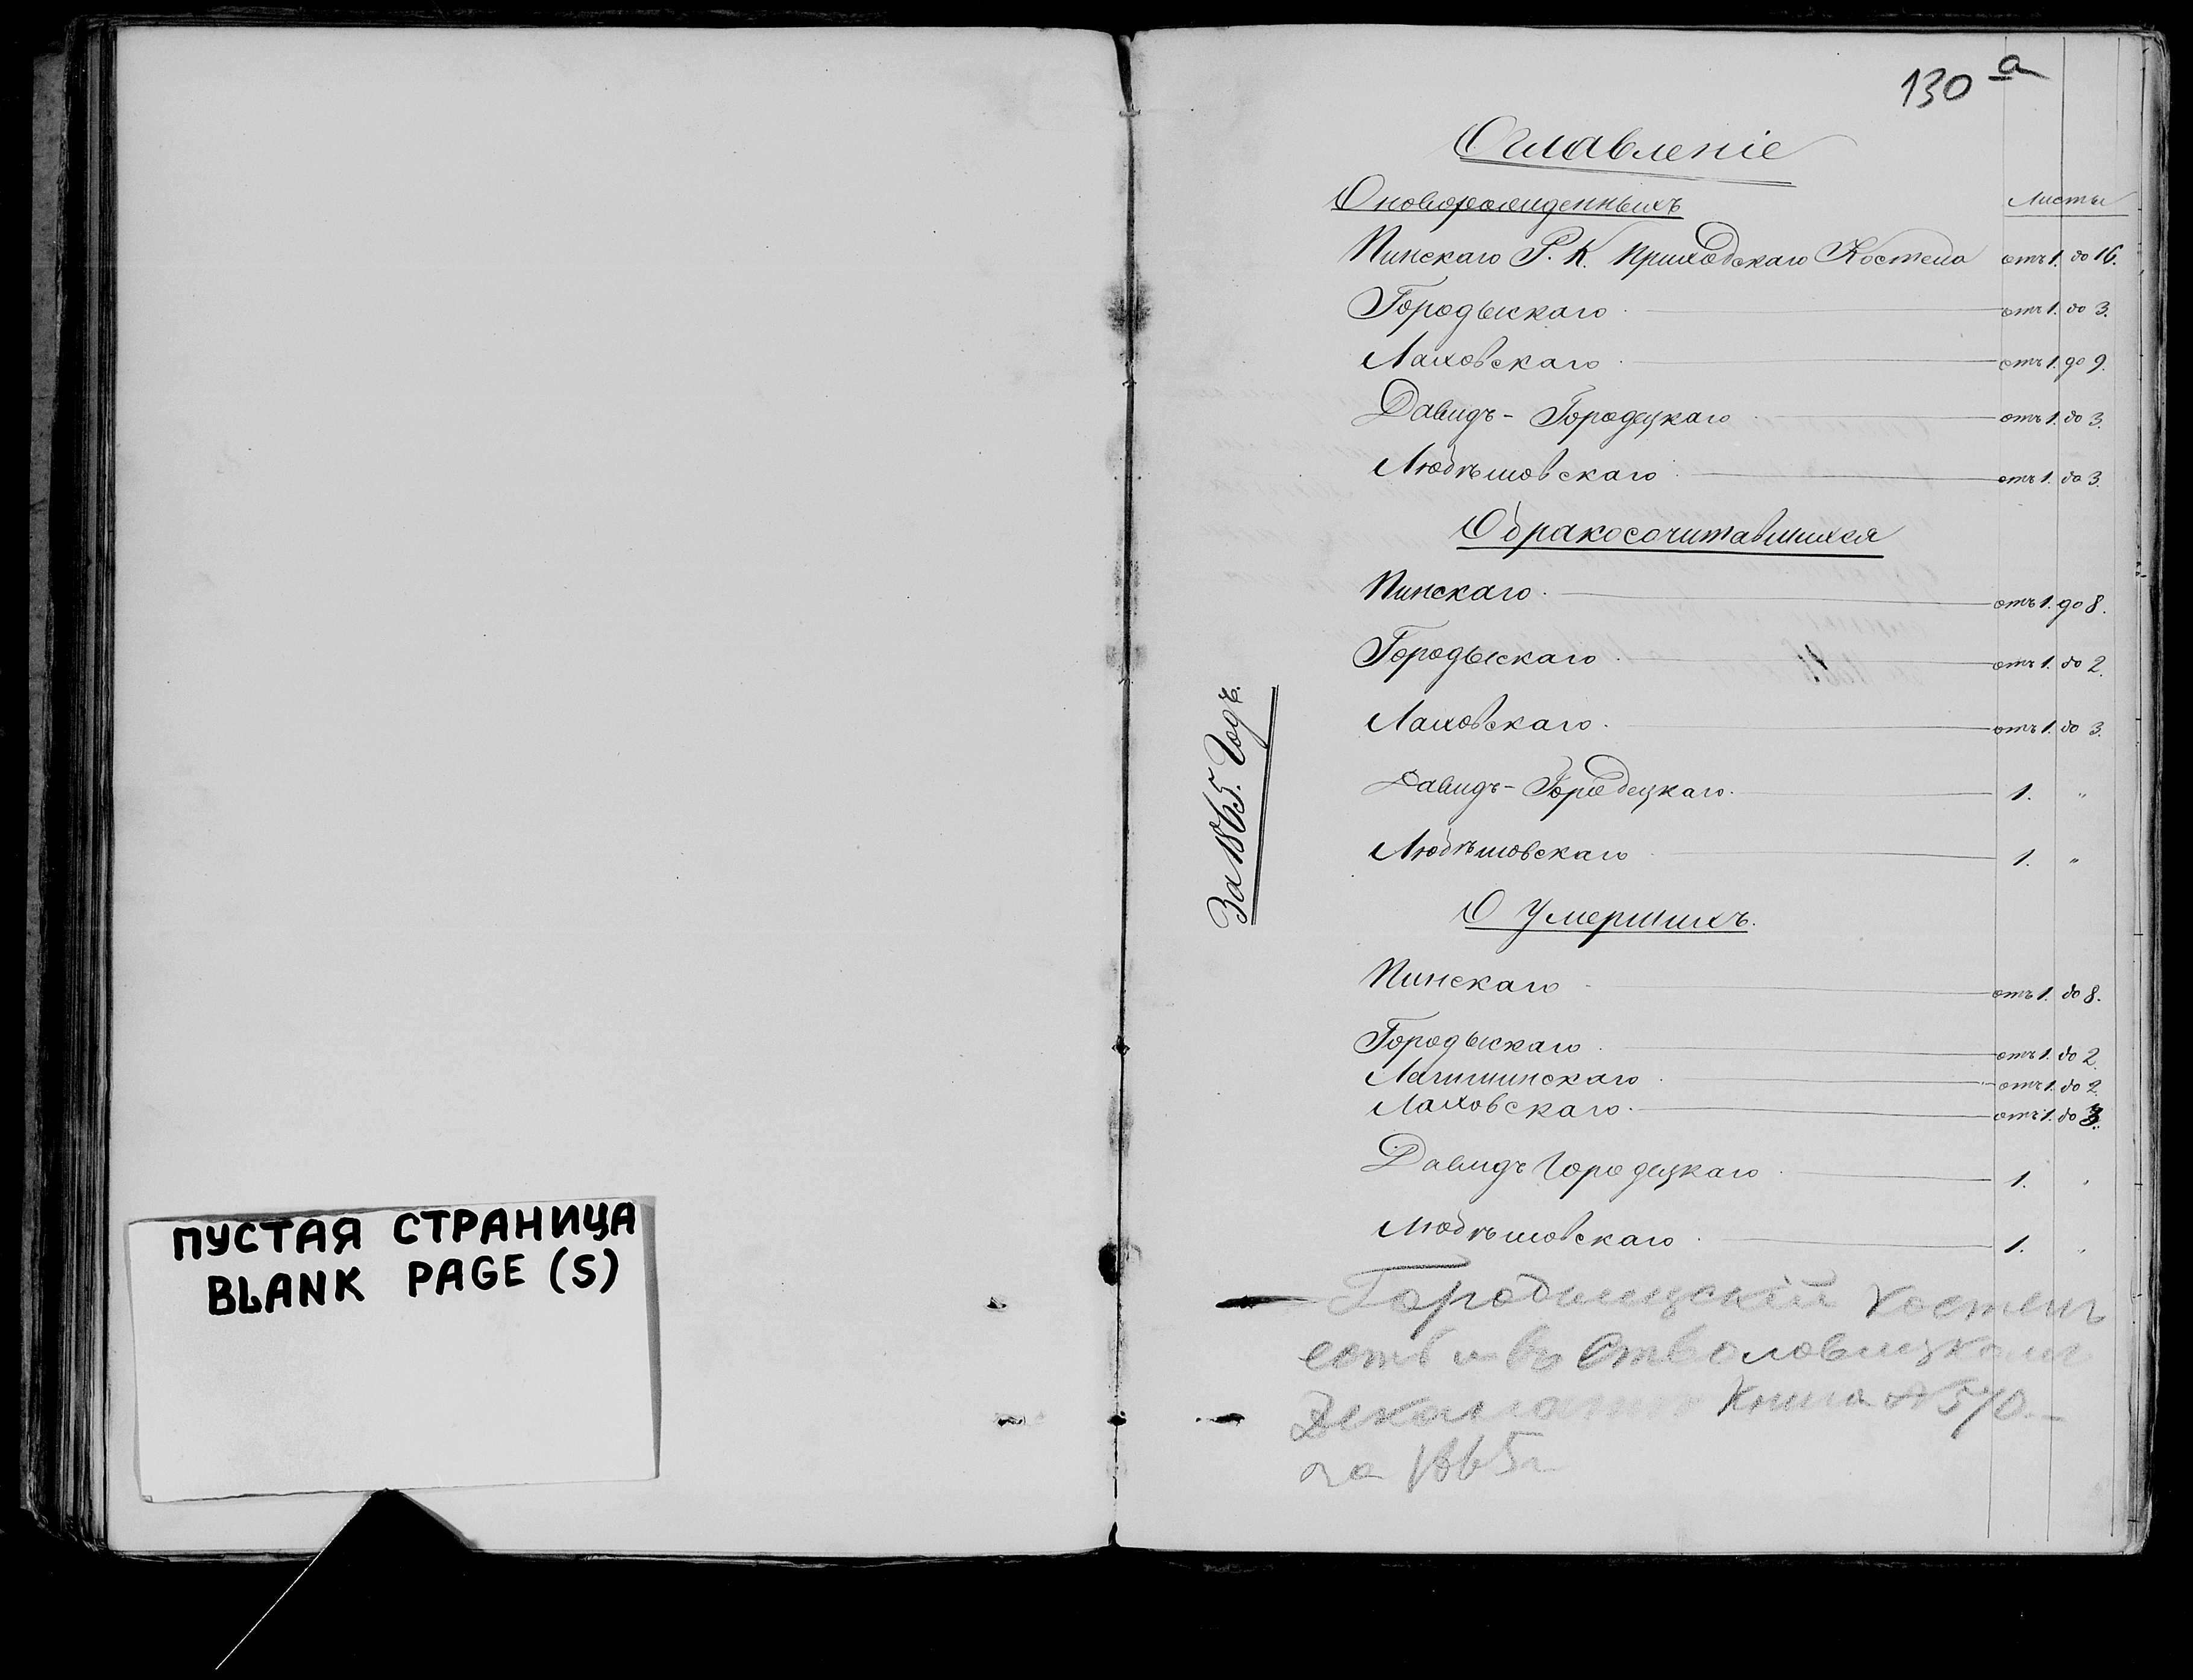 ПУСТАЯ СТРАНИЦА
BLANK PAGE (S)
130 а
Оглавленіе
О новорожденныхъ Листы
Пинскаго Р. К. Приходскаго Костела отъ 1. до 16.
Городыскаго отъ 1. до 3.
Лаховскаго отъ 1. до 9.
Давидъ-Городецкаго отъ 1. до 3.
Любѣшовскаго отъ 1. до 3.
О бракосочитавшихся
Пинскаго. отъ 1. до 8.
Городыскаго отъ 1. до 2.
Лаховскаго. отъ 1. до 3.
Давидъ-Городецкаго. 1. "
Любѣшовскаго 1. "
За 1865. Годъ.
О Умершихъ.
Пинскаго отъ 1. до 8.
Городыскаго отъ 1. до 2.
Логишинскаго отъ 1. до 2.
Лаховскаго. отъ 1. до 3.
Давидъ Городецкаго 1. "
Любѣшовскаго 1. "
Городищскій костелъ
есть и въ Столовицкомъ
Деканатѣ Книга № 570.—
за 1865г